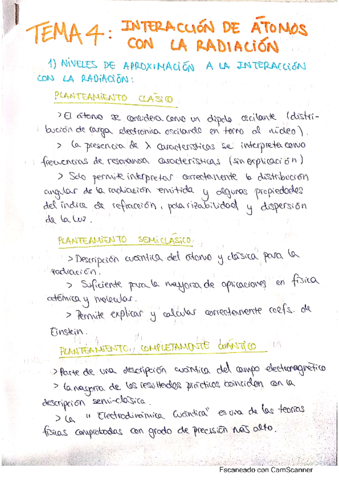 TEMA 4: INTERACCIÓN DE ÁTOMOS
CON LA RADIACIÓN
1) NIVELES DE APROXIMACIÓN A LA INTERACCIÓN
CON LA RADIACIÓN:
PLANTEAMIENTO CLÁSICO
> El átomo se considera como un dipolo oscilante (distri-
bución de carga electrónica oscilando en torno al núcleo).
> La presencia de λ características se interpreta como
frecuencias de resonancia características (sin explicación)
> Solo permite interpretar correctamente la distribución
angular de la radiación emitida y algunas propiedades
del índice de refracción, polarizabilidad y dispersión
de la luz.
PLANTEAMIENTO SEMICLÁSICO
> Descripción cuántica del átomo y clásica para la
radiación.
> Suficiente para la mayoría de aplicaciones en física
atómica y molecular.
> Permite explicar y calcular correctamente coefs. de
Einstein.
PLANTEAMIENTO COMPLETAMENTE CUÁNTICO
> Parte de una descripción cuántica del campo electromagnético
> La mayoría de los resultados prácticos coinciden con la
descripción semi-clásica.
> La "Electrodinámica Cuántica" es una de las teorías
físicas comprobadas con grado de precisión más alto.
Escaneado con CamScanner